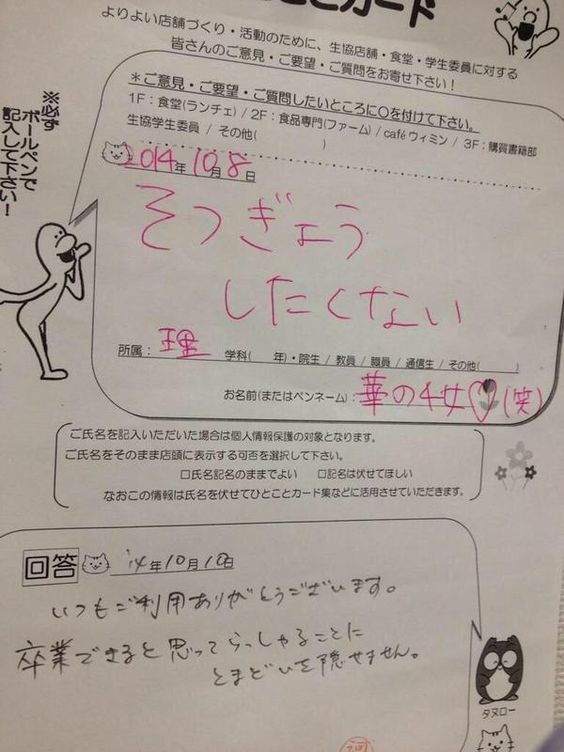 とカード
よりよい店舗づくり・活動のために、生協店舗・食堂・学生委員に対する
皆さんのご意見・ご要望・ご質問をお寄せ下さい！
※必ず
ボールペンで
記入して下さい！
＊ご意見・ご要望・ご質問したいところに○を付けて下さい。
1F：食堂(ランチェ) / 2F：食品専門(ファーム) / café ウィミン / 3F：購買書籍部
生協学生委員 / その他( )
2014年10月8日
そつぎょう
したくない
所属：理 学科( 年)・院生 / 教員 / 職員 / 通信生 / その他( )
お名前(またはペンネーム)：華の4女♡(笑)
ご氏名を記入いただいた場合は個人情報保護の対象となります。
ご氏名をそのまま店頭に表示する可否を選択して下さい。
□氏名記名のままでよい □記名は伏せてほしい
なおこの情報は氏名を伏せてひとことカード集などに活用させていただきます。
回答 '14年10月10日
いつもご利用ありがとうございます。
卒業できると思ってらっしゃることに
とまどいを隠せません。
タヌロー